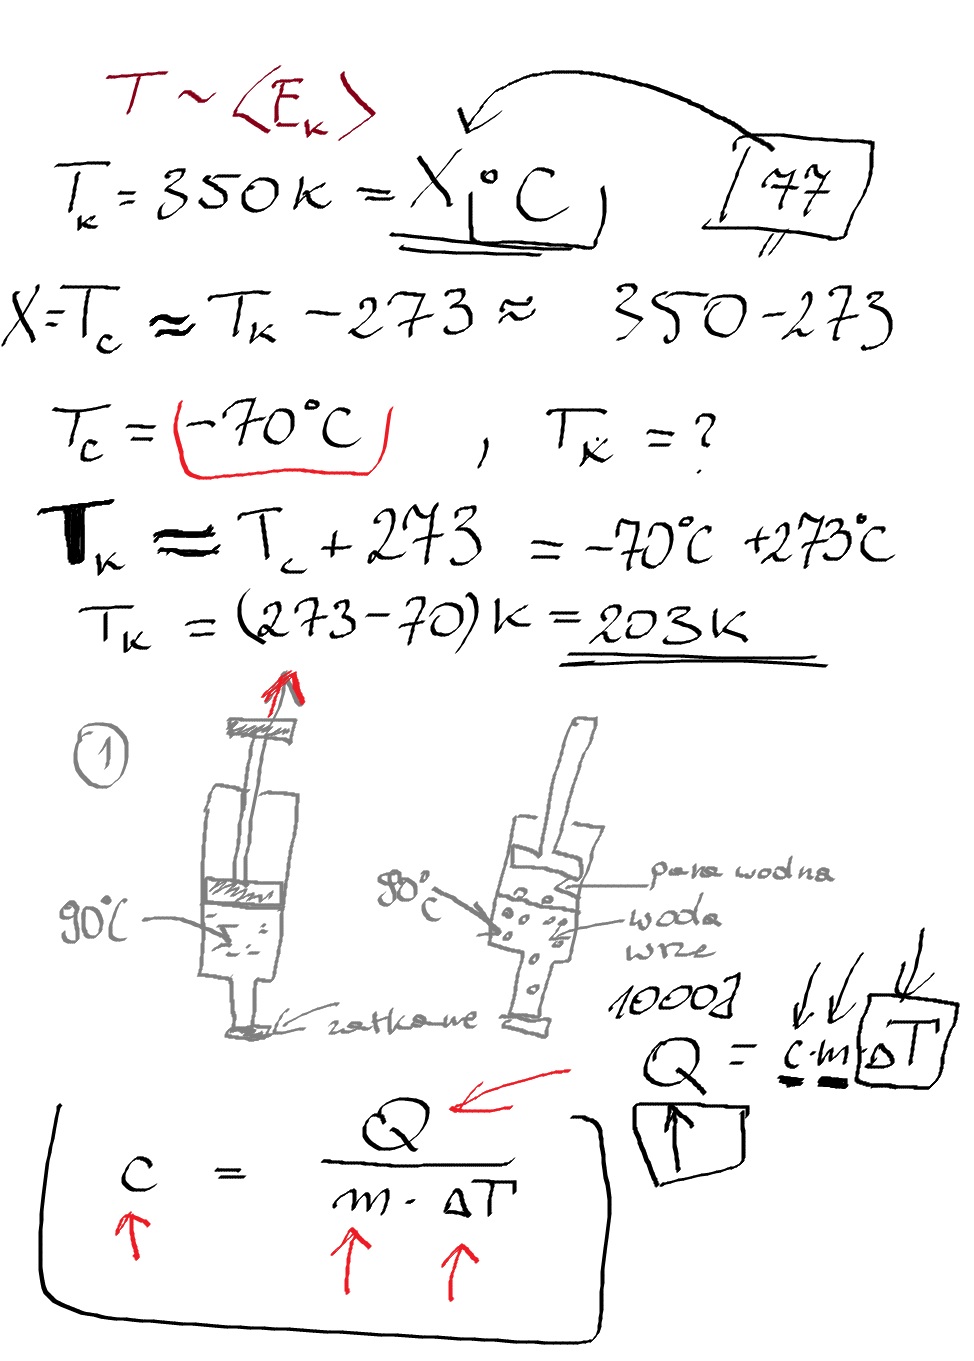 T ~ ⟨Eₖ⟩
Tₖ = 350 K = X °C
77
X = T_C ≈ Tₖ − 273 ≈ 350 − 273
T_C = −70°C , Tₖ = ?
Tₖ ≈ T_C + 273 = −70°C + 273°C
Tₖ = (273 − 70) K = 203 K
1
90°C
zatkane
90°C
para wodna
woda
wrze
1000J
Q = c · m · ΔT
c = Q / (m · ΔT)